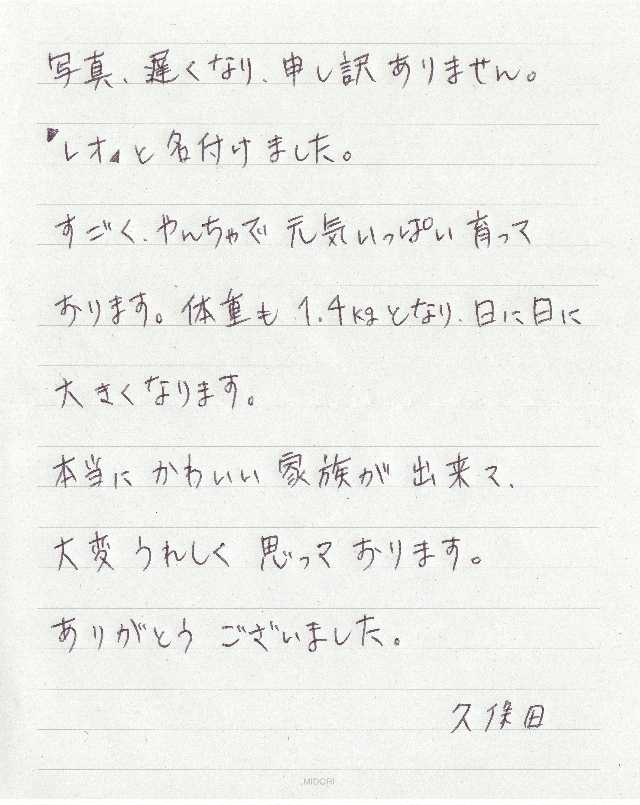 写真、遅くなり、申し訳ありません。
『レオ』と名付けました。
すごく、やんちゃで元気いっぱい育って
おります。体重も1.4kgとなり、日に日に
大きくなります。
本当にかわいい家族が出来て、
大変うれしく思っております。
ありがとうございました。
久保田
MIDORI